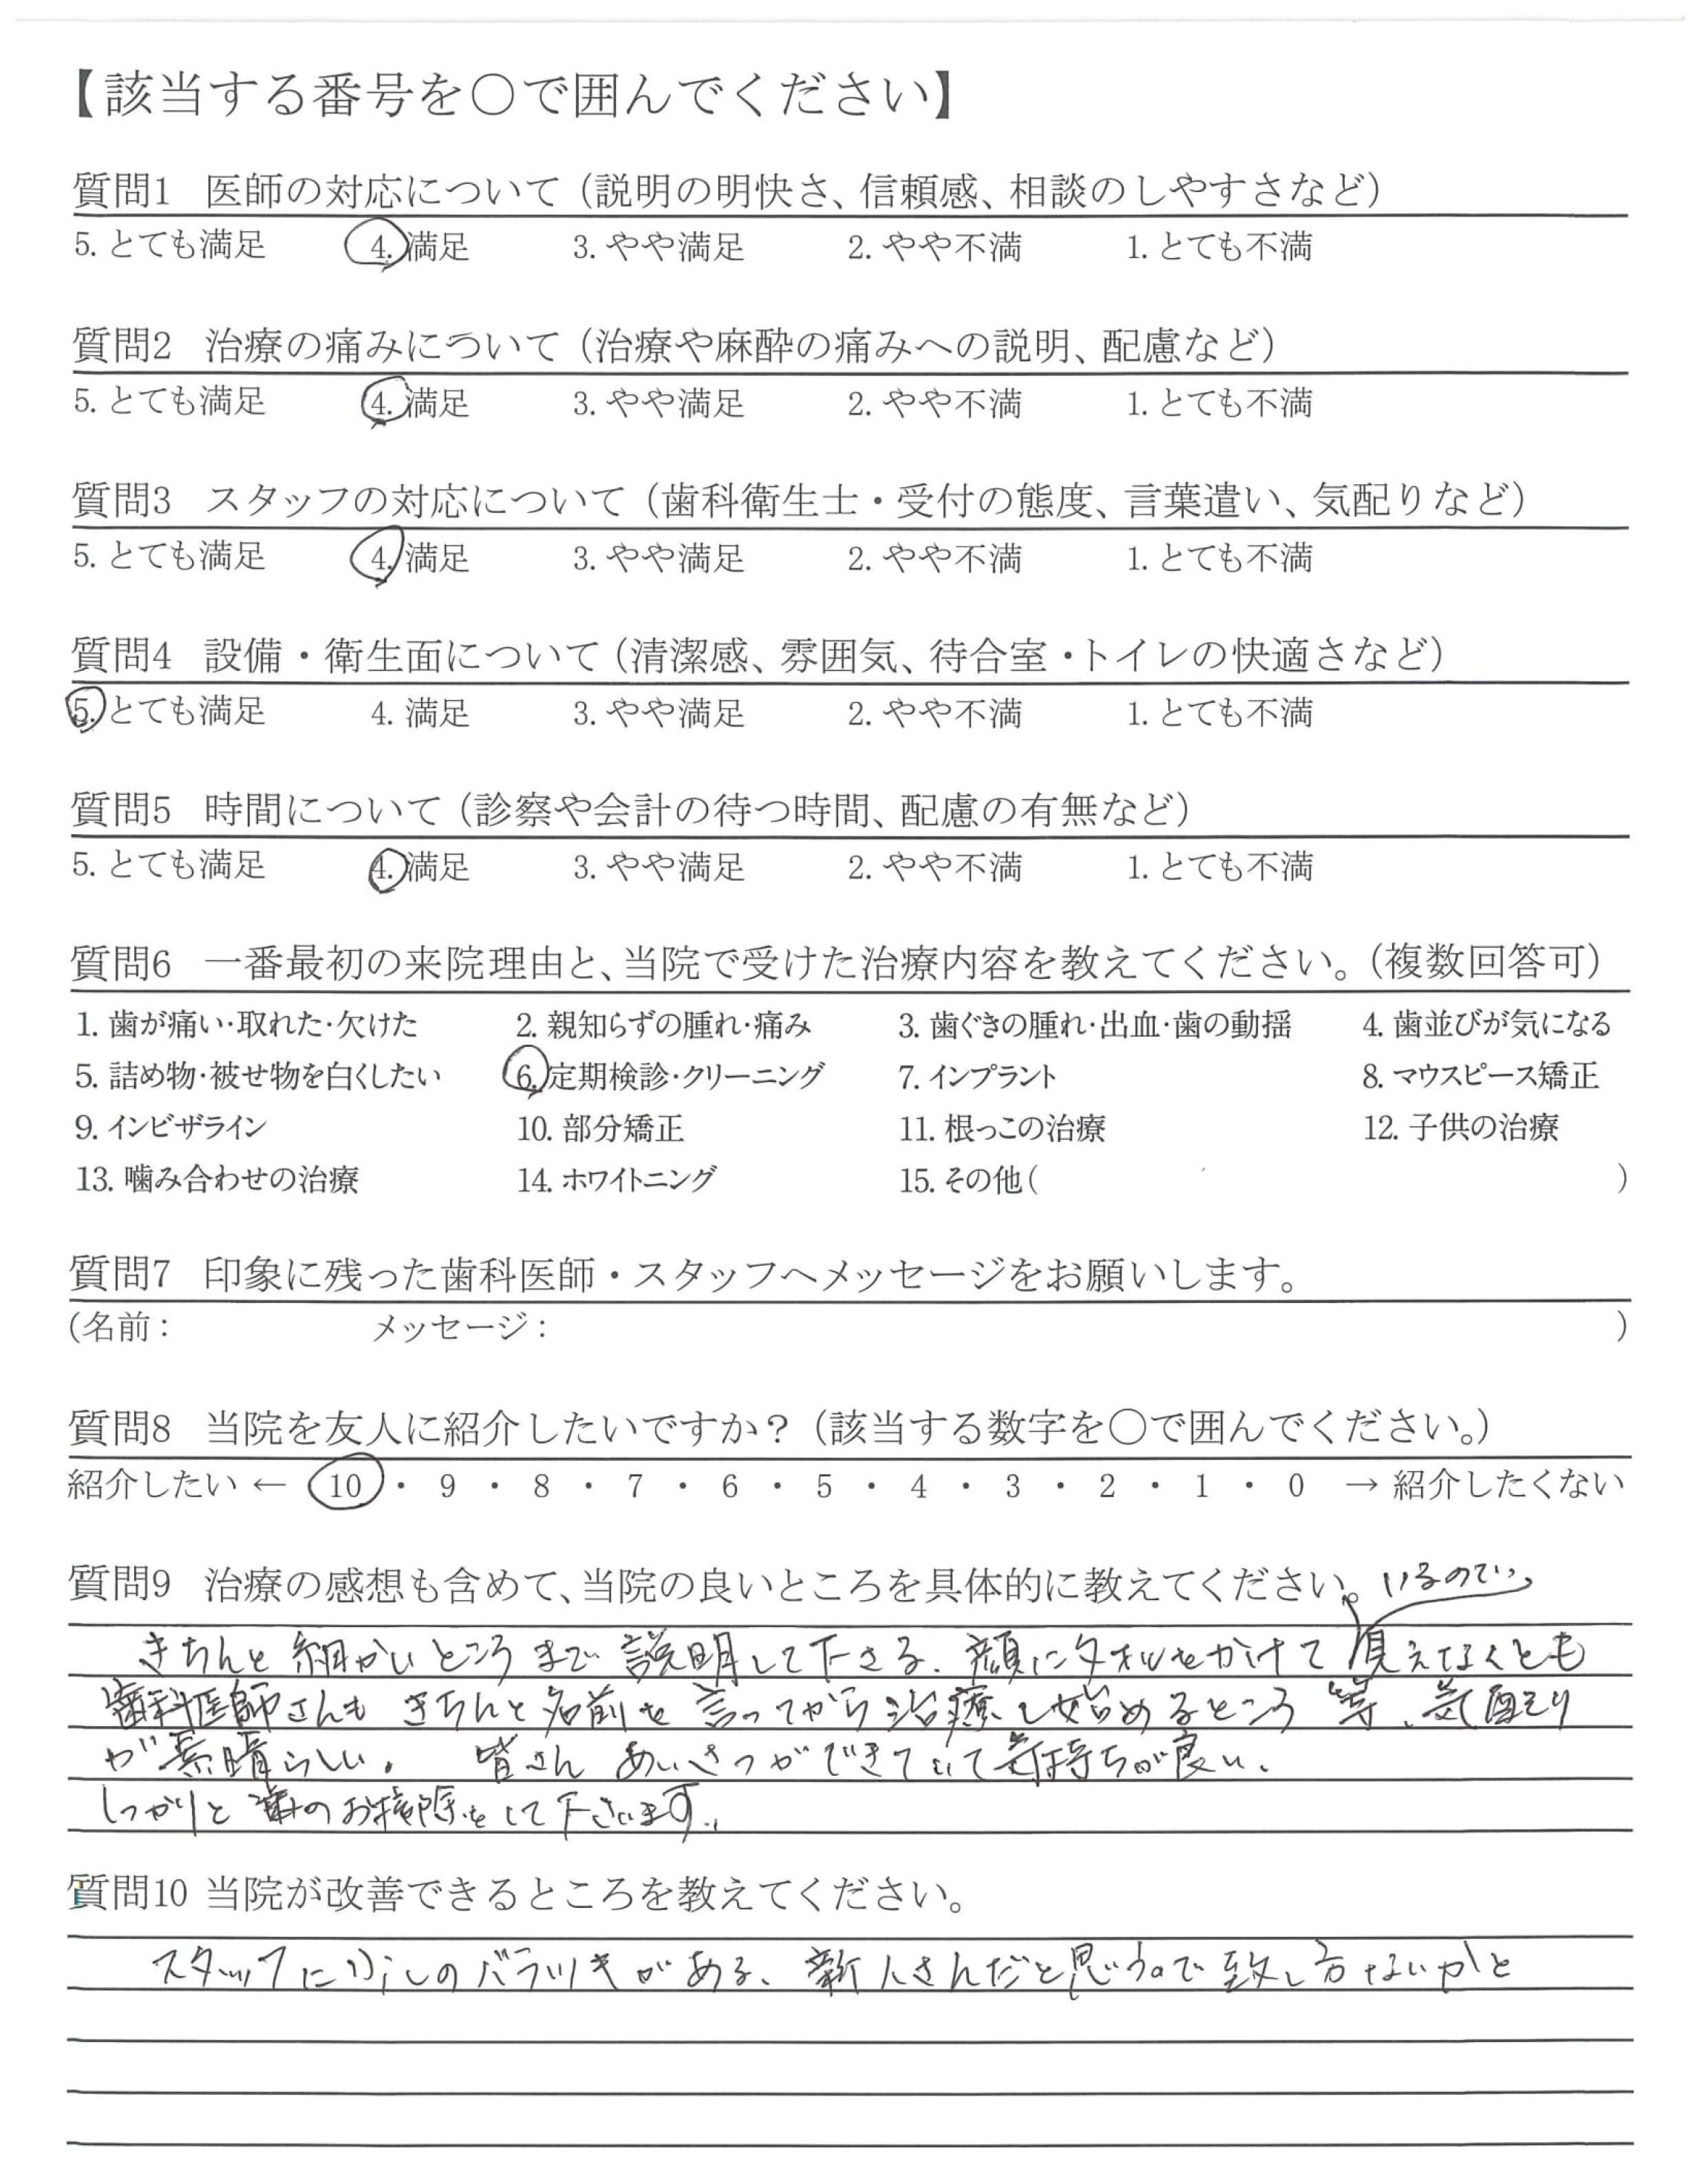 【該当する番号を○で囲んでください】
質問1 医師の対応について（説明の明快さ、信頼感、相談のしやすさなど）
5. とても満足 4. 満足 3. やや満足 2. やや不満 1. とても不満
質問2 治療の痛みについて（治療や麻酔の痛みへの説明、配慮など）
5. とても満足 4. 満足 3. やや満足 2. やや不満 1. とても不満
質問3 スタッフの対応について（歯科衛生士・受付の態度、言葉遣い、気配りなど）
5. とても満足 4. 満足 3. やや満足 2. やや不満 1. とても不満
質問4 設備・衛生面について（清潔感、雰囲気、待合室・トイレの快適さなど）
5. とても満足 4. 満足 3. やや満足 2. やや不満 1. とても不満
質問5 時間について（診察や会計の待つ時間、配慮の有無など）
5. とても満足 4. 満足 3. やや満足 2. やや不満 1. とても不満
質問6 一番最初の来院理由と、当院で受けた治療内容を教えてください。（複数回答可）
1. 歯が痛い・取れた・欠けた 2. 親知らずの腫れ・痛み 3. 歯ぐきの腫れ・出血・歯の動揺 4. 歯並びが気になる
5. 詰め物・被せ物を白くしたい 6. 定期検診・クリーニング 7. インプラント 8. マウスピース矯正
9. インビザライン 10. 部分矯正 11. 根っこの治療 12. 子供の治療
13. 噛み合わせの治療 14. ホワイトニング 15. その他（ ）
質問7 印象に残った歯科医師・スタッフへメッセージをお願いします。
（名前： メッセージ： ）
質問8 当院を友人に紹介したいですか？（該当する数字を○で囲んでください。）
紹介したい ← 10 ・ 9 ・ 8 ・ 7 ・ 6 ・ 5 ・ 4 ・ 3 ・ 2 ・ 1 ・ 0 → 紹介したくない
質問9 治療の感想も含めて、当院の良いところを具体的に教えてください。
いるので、
きちんと細かいところまで説明して下さる。顔にタオルをかけて見えなくとも
歯科医師さんも きちんと名前を言ってから治療し始めるところ等、気配り
が素晴らしい。 皆さん あいさつができていて気持ちが良い。
しっかりと歯のお掃除をして下さいます。
質問10 当院が改善できるところを教えてください。
スタッフに少しのバラツキがある、新人さんだと思うので致し方ないかと